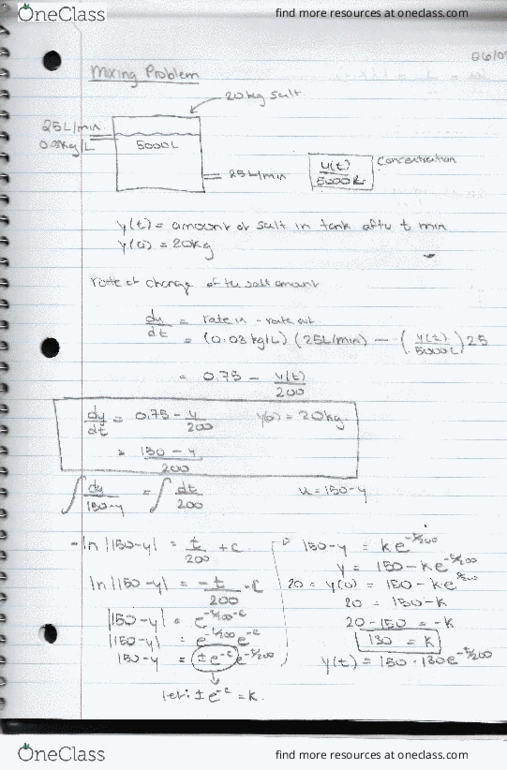 OneClass find more resources at oneclass.com
06/0
Mixing Problem
20kg salt
25L/min
0.03kg/L
5000L
25L/min
y(t)
5000L
Concentration
y(t) = amount of salt in tank after t min
y(0) = 20kg
rate of change of the salt amount
dy/dt = rate in - rate out
= (0.03 kg/L) (25L/min) - (y(t)/5000L) 25
= 0.75 - y(t)/200
dy/dt = 0.75 - y/200 y(0) = 20kg.
= 150 - y/200
∫ dy/150-y = ∫ dt/200 u = 150-y
-ln |150-y| = t/200 + C
ln |150-y| = -t/200 - C
|150-y| = e^-t/200-c
|150-y| = e^-t/200 e^-c
150-y = ±e^-c e^-t/200
let: ±e^-c = k.
150-y = ke^-t/200
y = 150 - ke^-t/200
20 = y(0) = 150 - ke
20 = 150 - k
20 - 150 = -k
130 = k
y(t) = 150 - 130e^-t/200
OneClass find more resources at oneclass.com